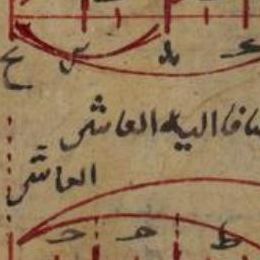 ح س يد ع
ضافا اليه العاشر
العاشر
ح ح ط